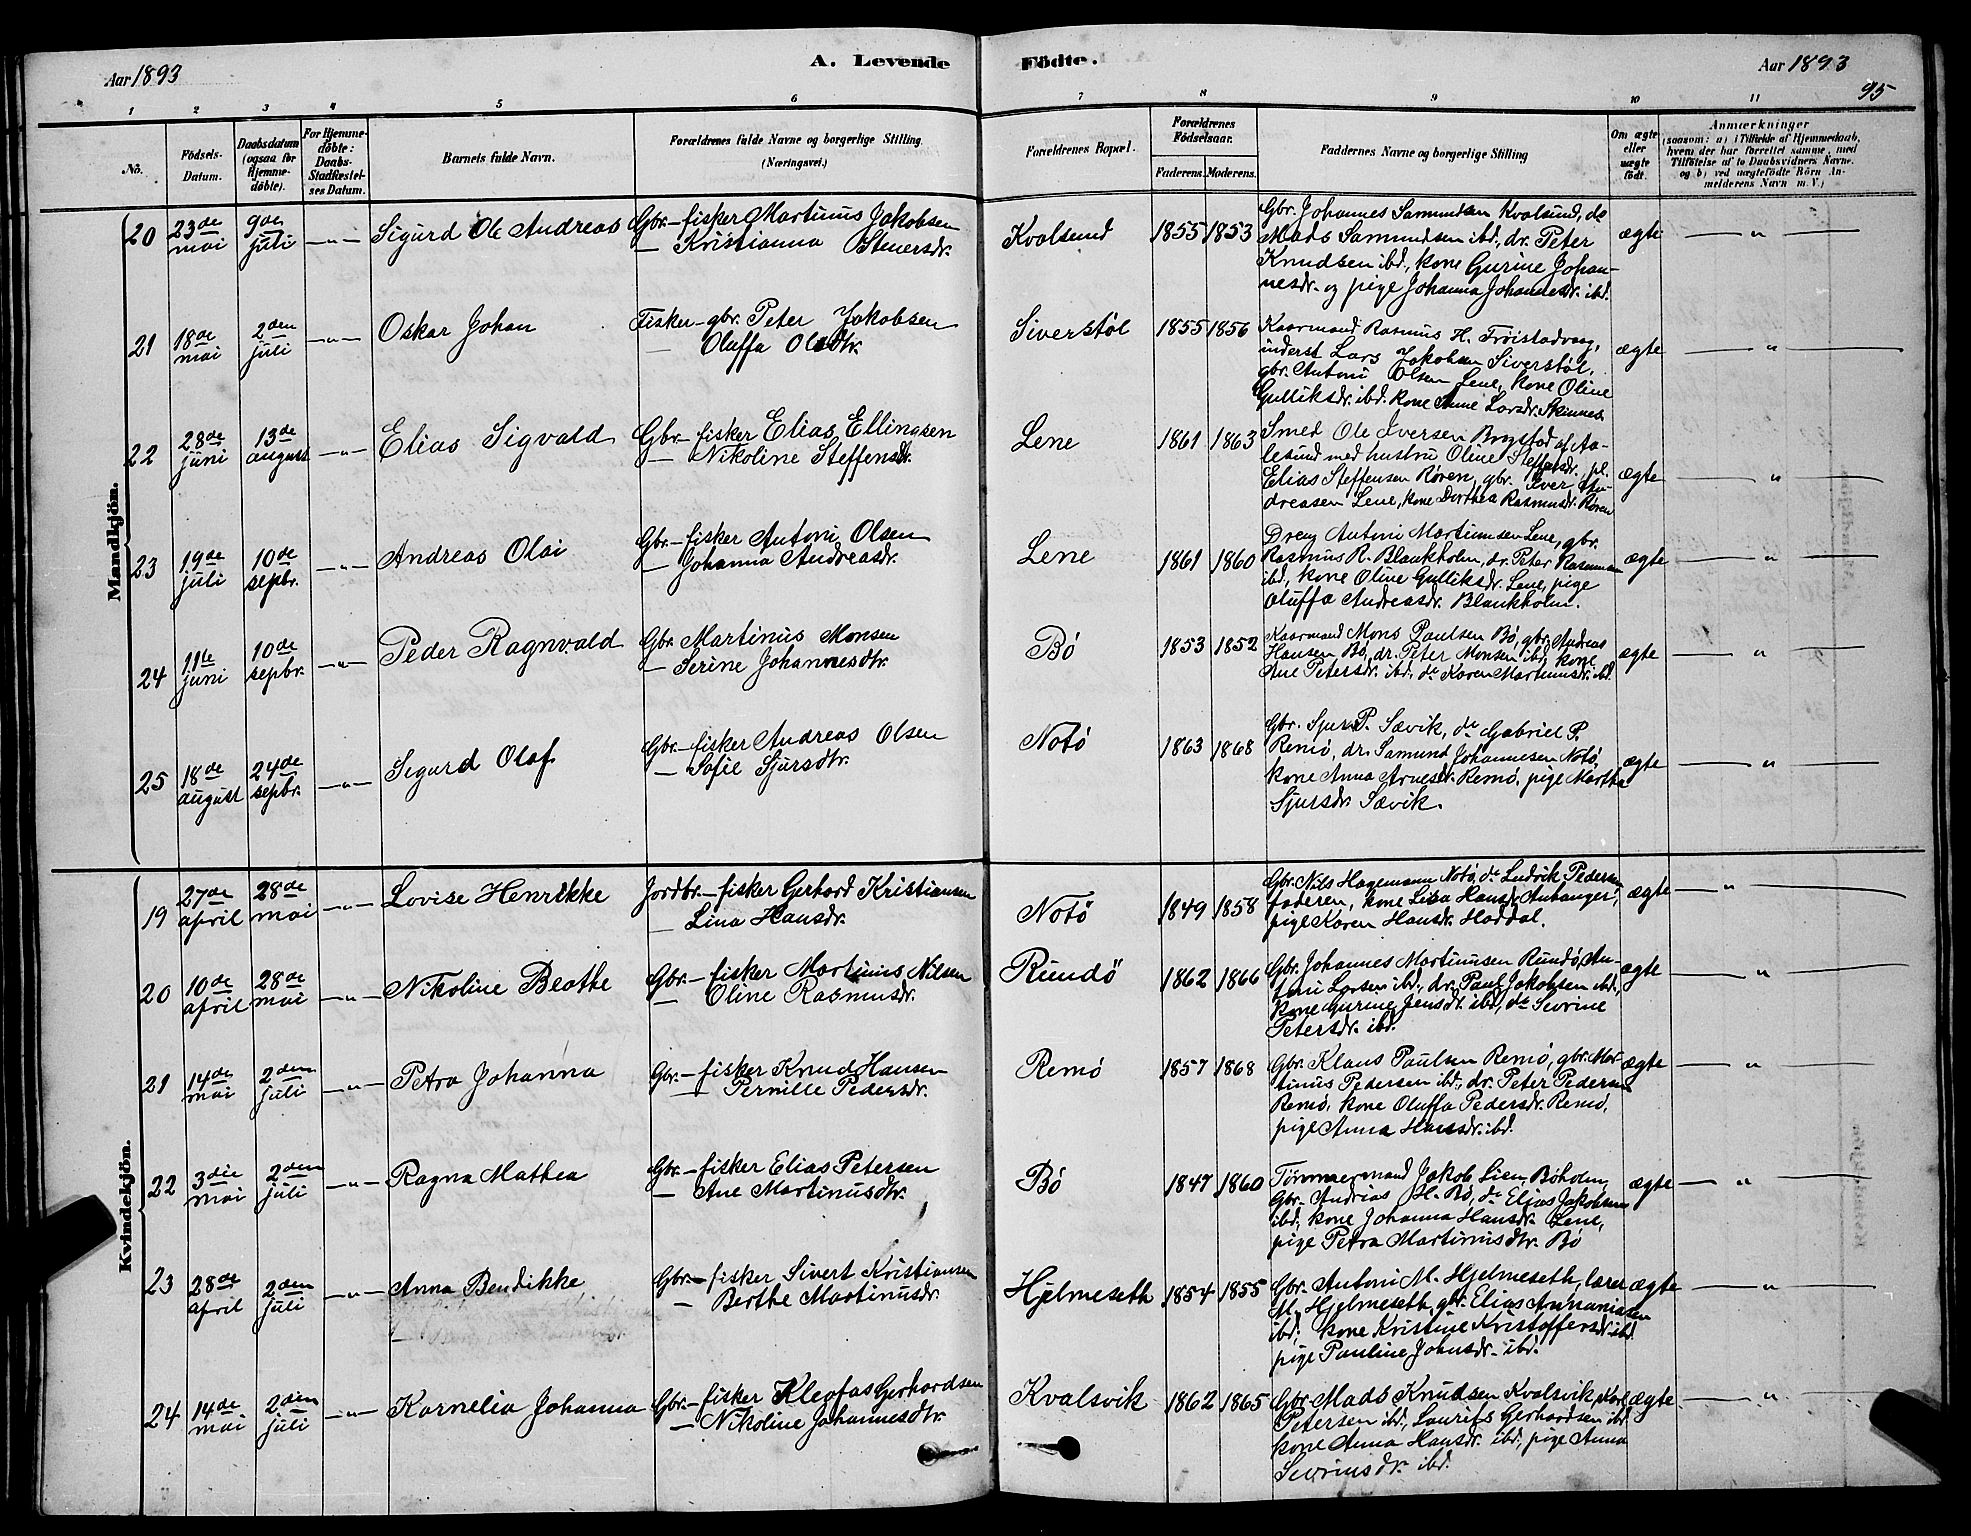 Aar 1893
A. Levende
Födte.
Aar 1893
95
1 2 3 4 5 6 7 8 9 10 11
No.
Födsels-Datum.
Daabsdatum (ogsaa for Hjemme-döbte).
For Hjemme-döbte: Daabs-Stadfæstel-ses Datum.
Barnets fulde Navn.
Forældrenes fulde Navne og borgerlige Stilling (Næringsvei.)
Forældrenes Bopæl.
Forældrenes Födselsaar.
Faderens. Moderens.
Faddernes Navne og borgerlige Stilling
Om ægte eller uægte födt.
Anmærkninger
(saasom: a) i Tilfælde af Hjemmedaab, hvem der har forrettet samme, med Tilföielse af to Daabsvidners Navne. og b) ved uægtefödte Börn An-melderens Navn m. V.)
Mandkjön.
20 23de mai 9de juli -"- Sigurd Ole Andreas
Gbr.-fisker Martinus Jakobsen
- Kristianna Steuersdr.
Kvalsund 1855 1853
Gbr. Johannes Samundsen Kvalsund, do
Mads Samundsen ibd., dr. Peter
Knudsen ibd., kone Gurine Johan-
nesdr. og pige Johanna Johannesdr. ibd.
ægte - " -
21 18de mai 2den juli -"- Oskar Johan
Fisker-gbr. Peter Jakobsen
- Oluffa Olsdtr.
Siverstøl 1855 1856
Kaarmand Rasmus H. Frøistadvaag,
inderst Lars Jakobsen Siverstøl,
gbr. Antoni Olsen Lene, kone Oline
Gulliksdr. ibd. kone Anne Larsdr. Skinnes
ægte - " -
22 28de juni 13de august -"- Elias Sigvald
Gbr.-fisker Elias Ellingsen
- Nikoline Steffensdr.
Lene 1861 1863
Smed Ole Iversen Brystad af Aa-
lesund med hustru Oline Steffensdr. pl.
Elias Steffensen Røren, gbr. Iver An-
dreasen Lene, kone Dorthea Rasmusdr. Røren
ægte - " -
23 19de juli 10de sepbr. -"- Andreas Olai
Gbr.-fisker Antoni Olsen
- Johanna Andreasdr.
Lene 1861 1860
Dreng Antoni Martinusen Lene, gbr.
Rasmus R. Blankholm, dr. Peter Rasmusen
ibd, kone Oline Gulliksdr. Lene, pige
Oluffa Andreasdr. Blankholm.
ægte - " -
24 11te juni 10de sepbr. -"- Peder Ragnvald
Gbr. Martinus Monsen
- Serine Johannesdtr.
Bø 1853 1852
Kaarmand Mons Paulsen Bø, gbr. Andreas
Hansen Bø, dr. Peter Monsen ibd, kone
Ane Petersdr. ibd., do Karen Martinusdr. ibd.
ægte - " -
25 18de august 24de sepbr. -"- Sigurd Olaf
Gbr.-fisker Andreas Olsen
- Sofie Sjursdtr.
Notø 1863 1868
Gbr. Sjur P. Sævik, do Gabriel P.
Remø, dr. Samund Johannesen Notø,
kone Anna Arnesdr. Remø, pige Martha
Sjursdr. Sævik.
ægte - " -
Kvindekjön.
19 27de april 28de mai -"- Lovise Henrikke
Jordbr.-fisker Gerhard Kristiansen
- Lina Hansdr.
Notø 1849 1858
Gbr. Nils Hagemann Notø, do Ludvik Pedersen
faderen, kone Lisa Hansdr.
pige Karen Hansdr. Haddal.
ægte - " -
20 10de april 28de mai -"- Nikoline Beathe
Gbr.-fisker Martinus Nilsen
- Oline Rasmusdr.
Rundø 1862 1866
Gbr. Johannes Martinusen Rundø, An-
toni Larsen ibd., dr. Paul Jakobsen ibd.,
kone Gurine Jensdr. ibd., do Sevrine
Petersdr. ibd.
ægte - " -
21 14de mai 2den juli -"- Petra Johanna
Gbr.-fisker Knud Hansen
- Pernille Pedersdr.
Remø 1857 1868
Gbr. Klaus Paulsen Remø, gbr. Mar-
tinus Pedersen ibd., dr. Peter Pedersen
Remø, kone Oluffa Pedersdr. Remø,
pige Anna Hansdr. ibd.
ægte - " -
22 3die mai 2den juli -"- Ragna Mathea
Gbr.-fisker Elias Petersen
- Ane Martinusdtr.
Bø 1847 1860
Tømmermand Jakob Lien Bøholm,
Gbr. Andrias H. Bø, do Elias Jakobsen
ibd, kone Johanna Hansdr. Lene,
pige Petra Martinusdtr. Bø
ægte - " -
23 28de april 2den juli -"- Anna Bendikke
Gbr.-fisker Sivert Kristiansen
- Berthe Martinusdr.
Hjelmeseth 1854 1855
Gbr. Antoni M. Hjelmeseth, lærer
M. Hjelmeseth, gbr. Elias Annaniasen
ibd, kone Kristine Kristoffersdr. ibd.
pige Pauline Johnsdr. ibd.
ægte - " -
24 14de mai 2den juli -"- Kornelia Johanna
Gbr.-fisker Kleofas Gerhardsen
- Nikoline Johannesdtr.
Kvalsvik 1862 1865
Gbr. Mads Knudsen Kvalsvik, Karl
Petersen ibd., Laurits Gerhardsen ibd.
kone Anna Hansdr. ibd., pige Anna
Sevrinsdr. ibd.
ægte - " -